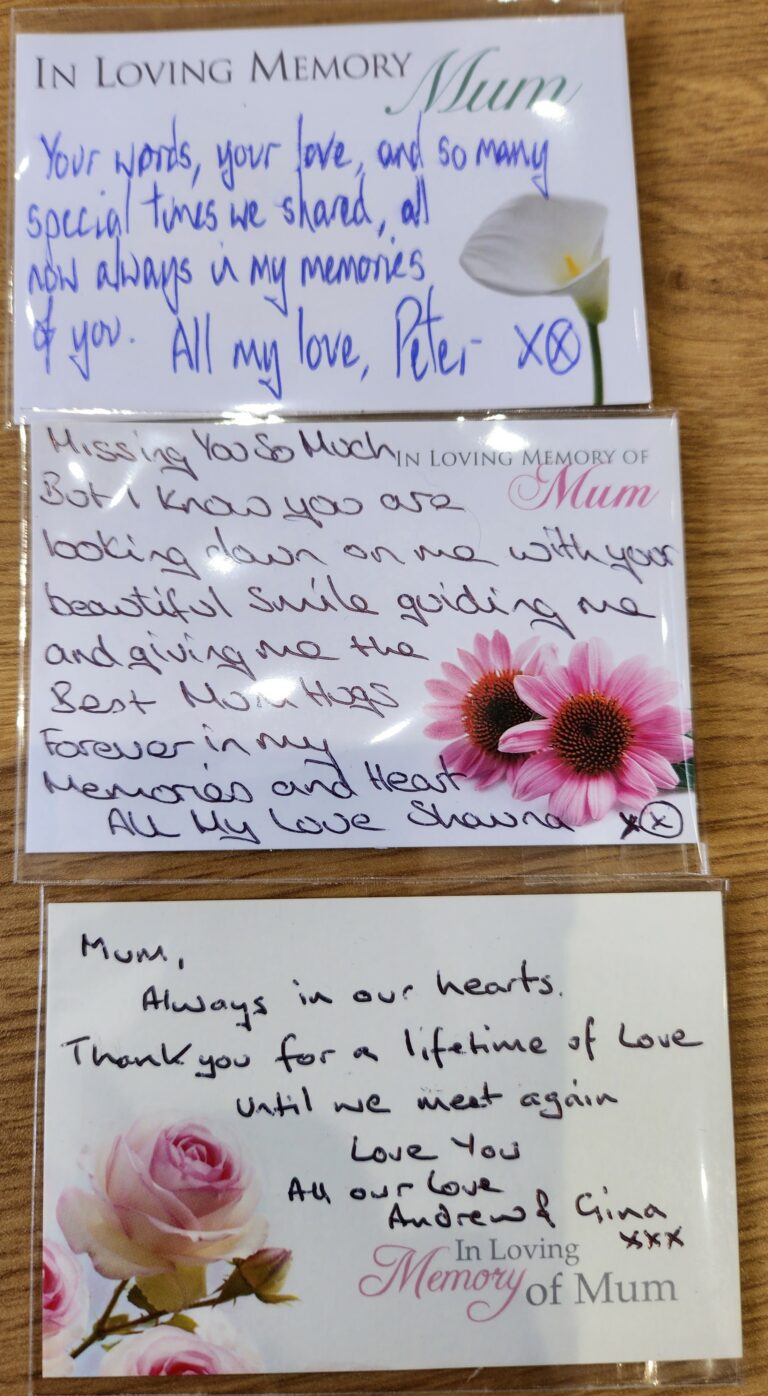 IN LOVING MEMORY Mum
Your words, your love, and so many
special times we shared, all
now always in my memories
of you. All my love, Peter xx
Missing You So Much
IN LOVING MEMORY OF
Mum
But I know you are
looking down on me with your
beautiful Smile guiding me
and giving me the
Best Mum Hugs
Forever in my
Memories and Heart
All My Love Shauna xx
Mum,
Always in our hearts.
Thank you for a lifetime of Love
until we meet again
Love You
All our Love
Andrew & Gina
xxx
In Loving
Memory of Mum